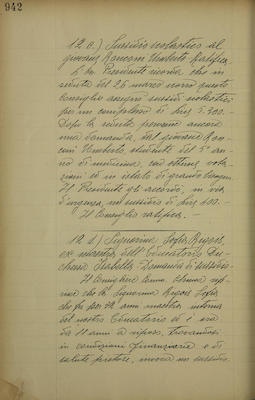 942
12 c.) Sussidio scolastico al
giovane Ranconi Umberto. Ratifica.
Il Presidente ricorda che in
seduta del 26 marzo scorso questo
Consiglio assegnò sussidi scolastici
per un complesso di Lire 3.300.
Dopo la seduta pervenne ancora
una domanda, dal giovane
Umberto, studente del 5° an-
no di medicina, con ottime vota-
zioni ed in istato di grande bisogno.
Il Presidente gli accordò, in via
d'urgenza, un sussidio di Lire 400.
Il Consiglio ratifica. —
12 d) Signorina Sofia
ex maestra dell'Educatorio Du-
chessa Isabella. Domanda di sussidio.
Il Consigliere Anna
che la Signorina Sofia
che fu per 22 anni maestra interna
del nostro Educatorio ed è ora
da 11 anni a riposo, trovandosi
in condizioni finanziarie e di
salute precarie, invoca un sussidio